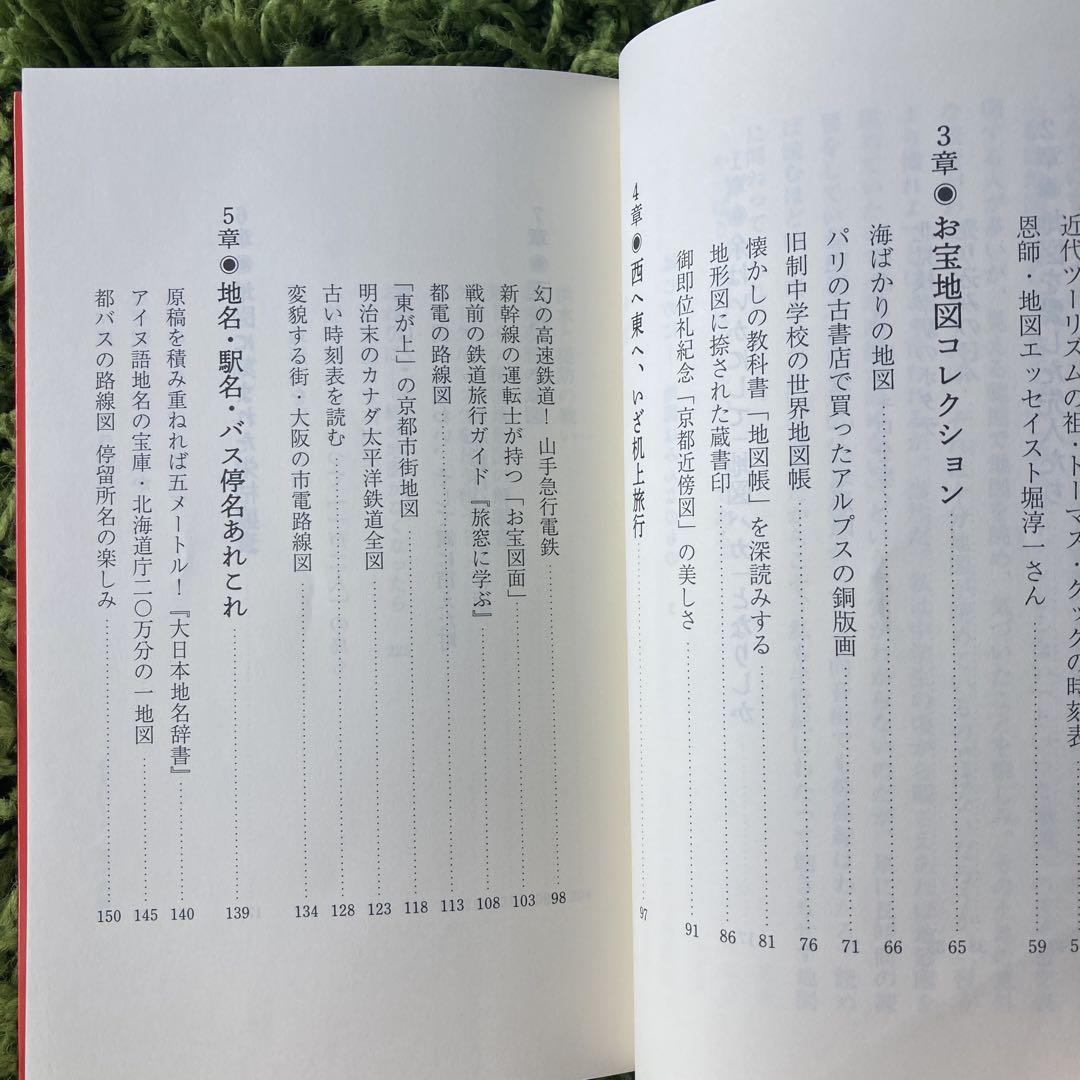 近代ツーリズムの祖・トーマス・クックの時刻表
恩師・地図エッセイスト堀淳一さん 59
3章◉お宝地図コレクション 65
海ばかりの地図 66
パリの古書店で買ったアルプスの銅版画 71
旧制中学校の世界地図帳 76
懐かしの教科書「地図帳」を深読みする 81
地形図に捺された蔵書印 86
御即位礼紀念「京都近傍図」の美しさ 91
4章◉西へ東へ、いざ机上旅行 97
幻の高速鉄道！ 山手急行電鉄 98
新幹線の運転士が持つ「お宝図面」 103
戦前の鉄道旅行ガイド『旅窓に学ぶ』 108
都電の路線図 113
「東が上」の京都市街地図 118
明治末のカナダ太平洋鉄道全図 123
古い時刻表を読む 128
変貌する街・大阪の市電路線図 134
5章◉地名・駅名・バス停名あれこれ 139
原稿を積み重ねれば五メートル！『大日本地名辞書』 140
アイヌ語地名の宝庫・北海道庁二〇万分の一地図 145
都バスの路線図 停留所名の楽しみ 150